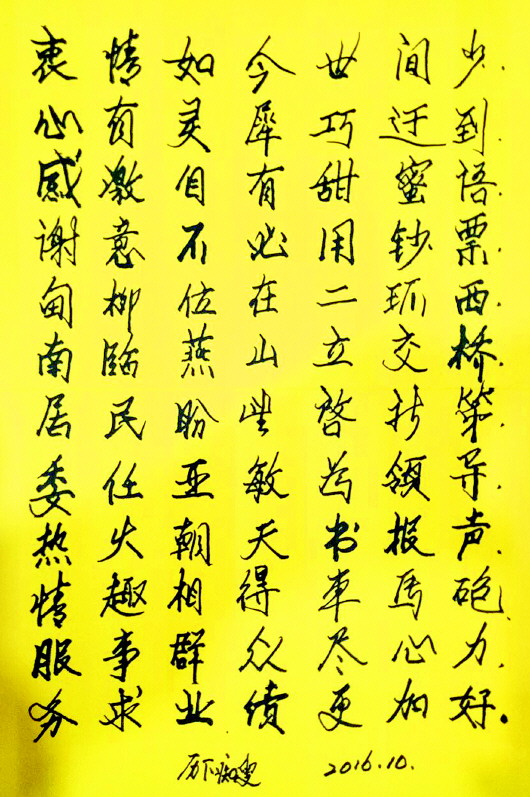 衷情如今世间少.
心有灵犀巧迂到.
感激自有甜蜜悟.
谢意不必用钞票.
甸柳位在二环西.
南临燕山立交桥.
居民盼
委任亚敏为领导.
热火朝天书报声.
情趣相得车马砲.
服事群众尽心力.
务求业绩更加好.
历下痴叟 2016.10.